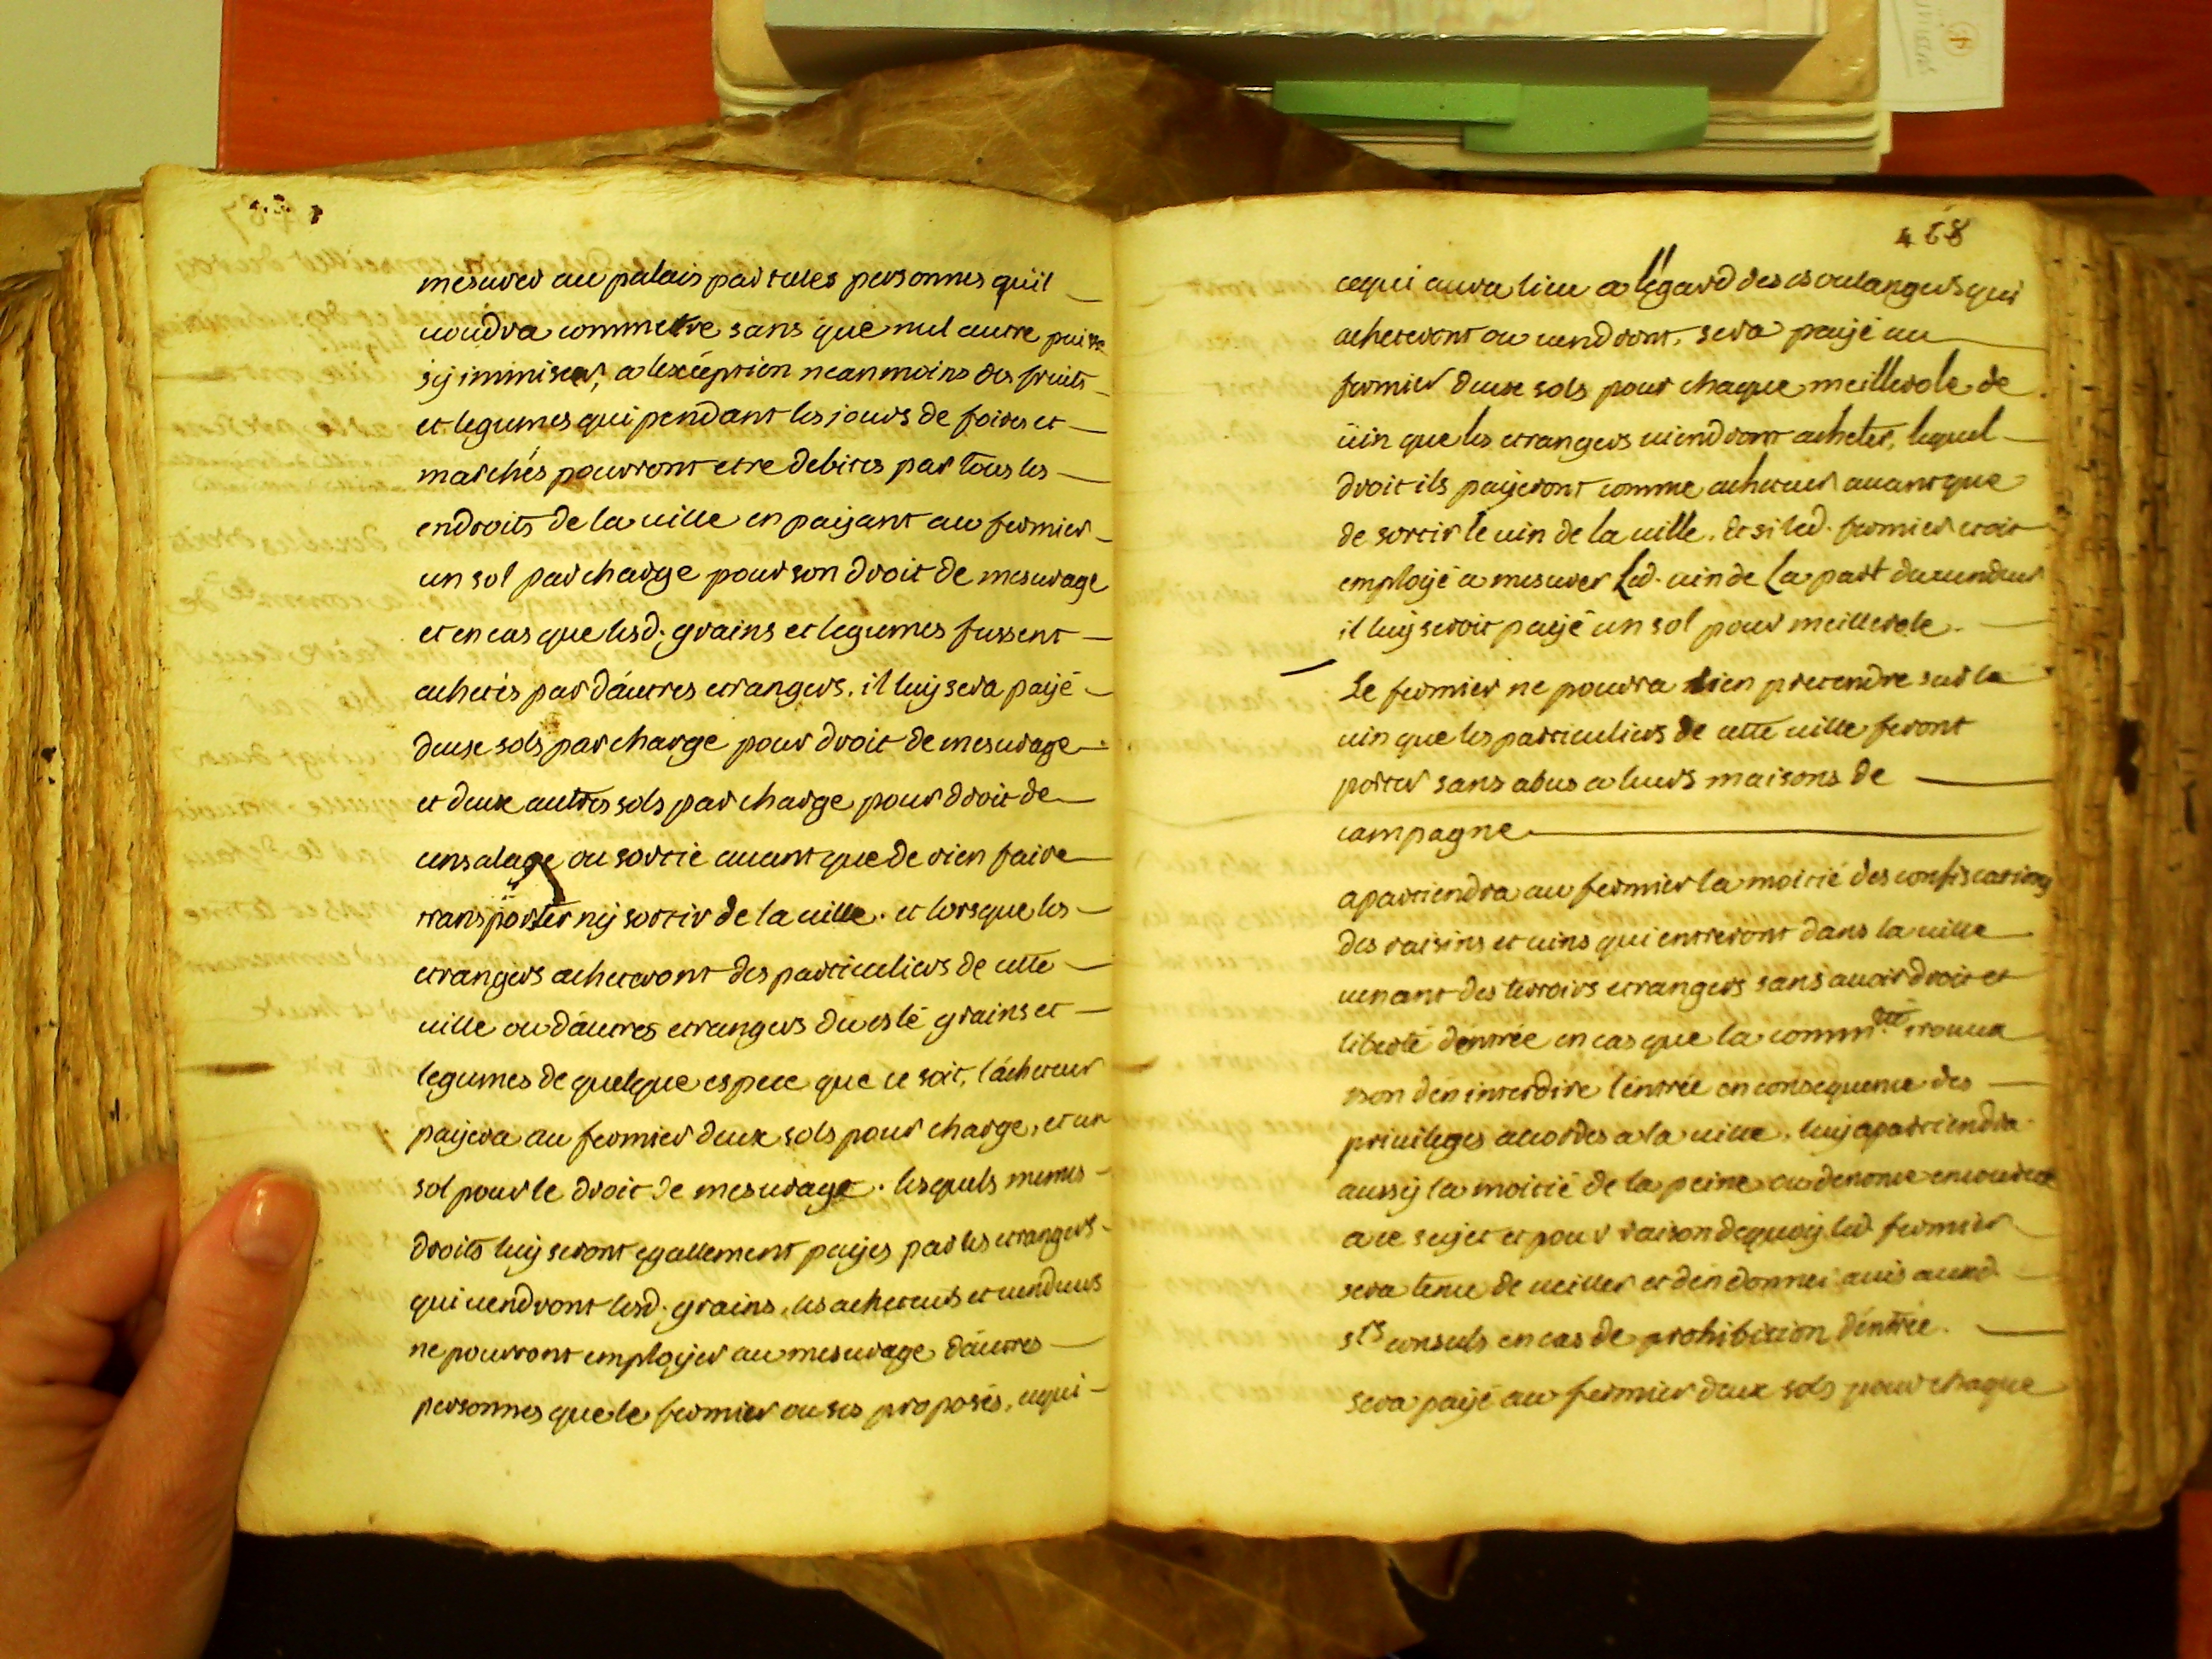 mesurer au palais par tales personnes qu'il
voudra commettre sans que nul autre puisse
sÿ immiscer, a lexception neanmoins des fruits
et legumes qui pendant les jours de foires et
marchés pourront etre debites par tous les
endroits de la uille en paijant au fermier
un sol par charge pour son droit de mesurage
et en cas que lesd. grains et legumes fussent
achetés par dáutres etrangers, il luij sera paijé
deux sols par charge pour droit de mesurage
et deux autres sols par charge pour droit de
censalage ou sortie auant que de rien faire
transporter nij sortir de la uille. et lorsque les
etrangers acheteront des particuliers de cette
uille ou dáutres etrangers du blé grains et
legumes de quelque espece que ce soit, lácheteur
paijera au fermier deux sols pour charge, et un
sol pour le droit de mesurage. lesquels memes
droits luij seront egallement paijes par les etrangers
qui uendront lesd. grains, les acheteurs et uendeurs
ne pourront emploijer au mesurage dáutres
personnes que le fermier ou ses proposés, cequi
468
cequi aura lieu a légard des boulangers qui
acheteront ou uendront, sera paijé au
fermier deux sols pour chaque meillerole de
uin que les etrangers uiendront acheter, lequel
droit ils paijeront comme acheteur auant que
de sortir le uin de la uille. et si led. fermier etoit
emploijé a mesurer Led. uin de La part du uendeur
il luij seroit paijé un sol pour meillerole.
Le fermier ne pourra rien pretendre sur le
uin que les particuliers de cette uille feront
porter sans abus a leurs maisons de
campagne
apartiendra au fermier la moitié des confiscations
des raisins et uins qui entreront dans la uille
uenant des terroirs etrangers sans auoir droit et
liberté déntrée en cas que la comm.té trouua
bon den interdire léntrée en consequence des
priuileges accordes a la uille, luij apartiendra
aussij la moitié de la peine au denonce encourue
a ce sujet et pour raison dequoij led. fermier
sera tenu de ueiller et dén donner auis auxd.
srs consuls en cas de prohibition déntrée.
sera paijé au fermier deux sols pour chaque